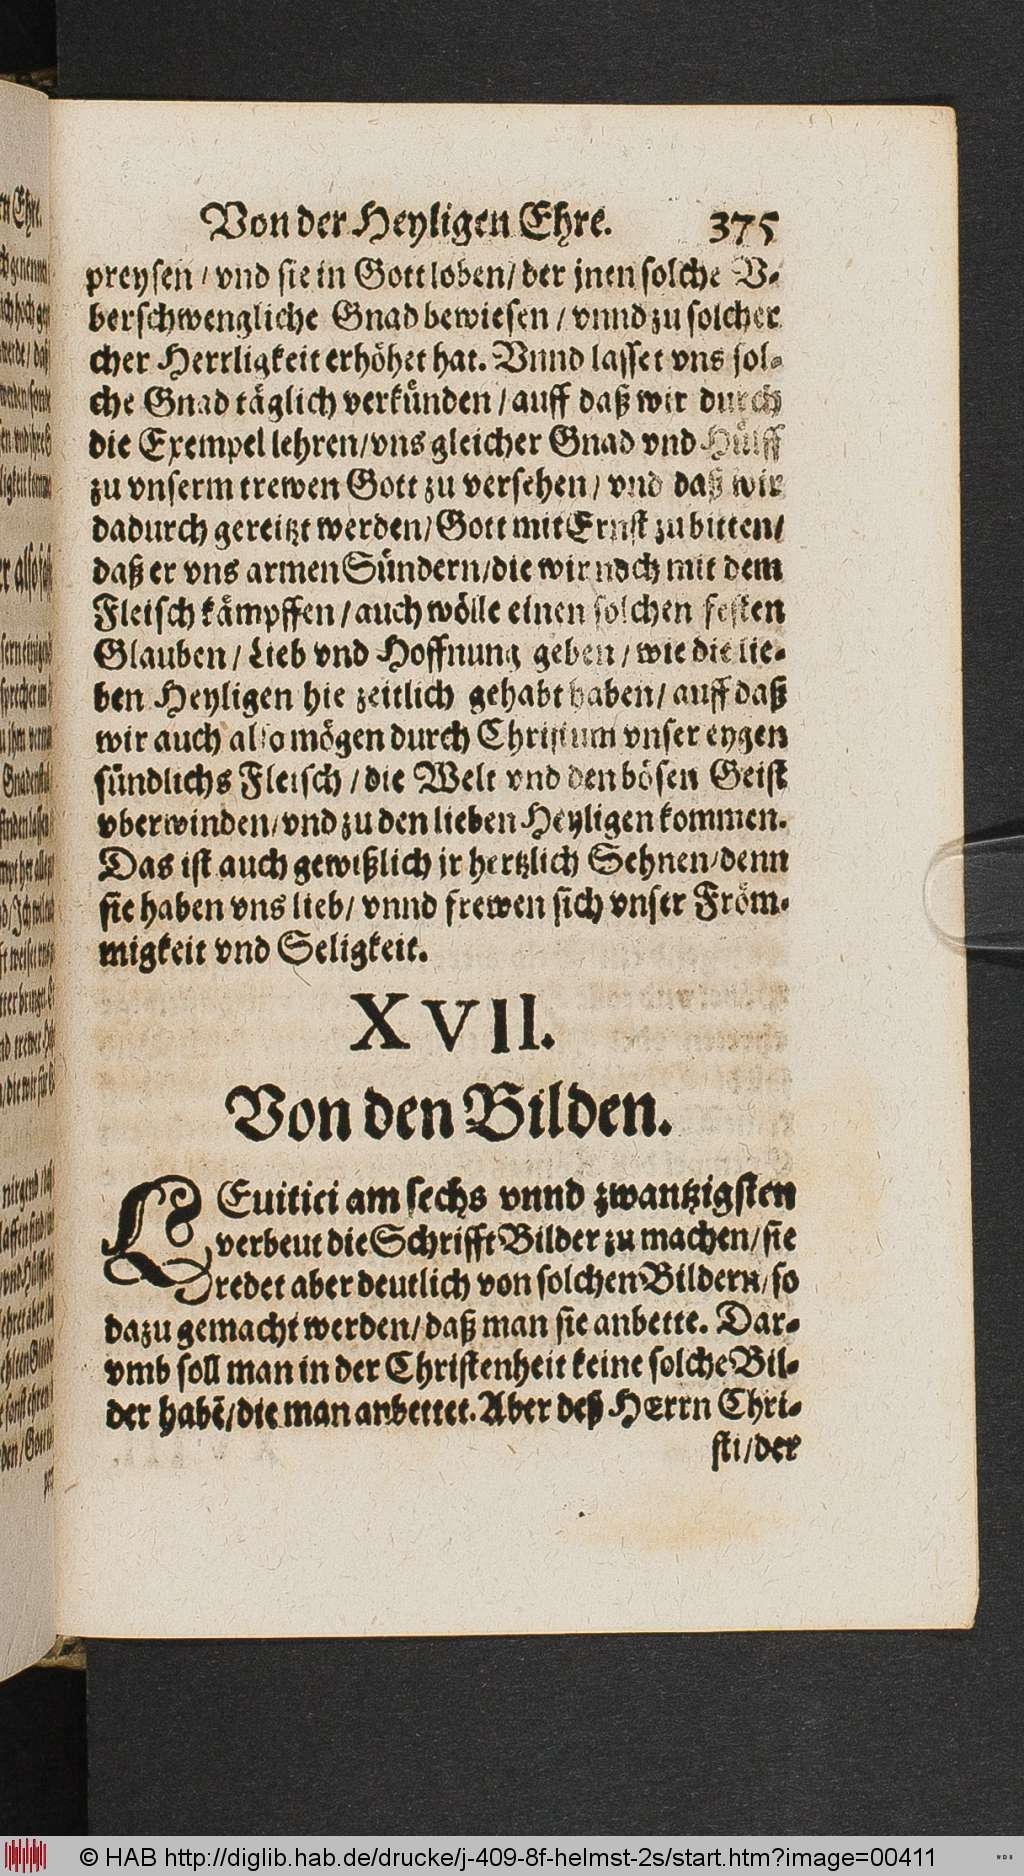 Von der Heyligen Ehre. 375
preysen / vnd sie in Gott loben / der jnen solche V-
berschwengliche Gnad bewiesen / vnnd zu solcher
cher Herrligkeit erhöhet hat. Vnnd lasset vns sol-
che Gnad täglich verkünden / auff daß wir durch
die Exempel lehren / vns gleicher Gnad vnd Hülff
zu vnserm trewen Gott zu versehen / vnd daß wir
dadurch gereitzt werden / Gott mit Ernst zu bitten /
daß er vns armen Sündern / die wir noch mit dem
Fleisch kämpffen / auch wölle einen solchen festen
Glauben / Lieb vnd Hoffnung geben / wie die lie-
ben Heyligen hie zeitlich gehabt haben / auff daß
wir auch also mögen durch Christum vnser eygen
sündlichs Fleisch / die Welt vnd den bösen Geist
vberwinden / vnd zu den lieben Heyligen kommen.
Das ist auch gewißlich jr hertzlich Sehnen / denn
sie haben vns lieb / vnnd frewen sich vnser Fröm-
migkeit vnd Seligkeit.
XVII.
Von den Bilden.
LEuitici am sechs vnnd zwantzigsten
verbeut die Schrifft Bilder zu machen / sie
redet aber deutlich von solchen Bildern / so
dazu gemacht werden / daß man sie anbette. Dar-
vmb soll man in der Christenheit keine solche Bil-
der habē / die man anbettet. Aber deß HErrn Chri-
sti / der
© HAB http://diglib.hab.de/drucke/j-409-8f-helmst-2s/start.htm?image=00411